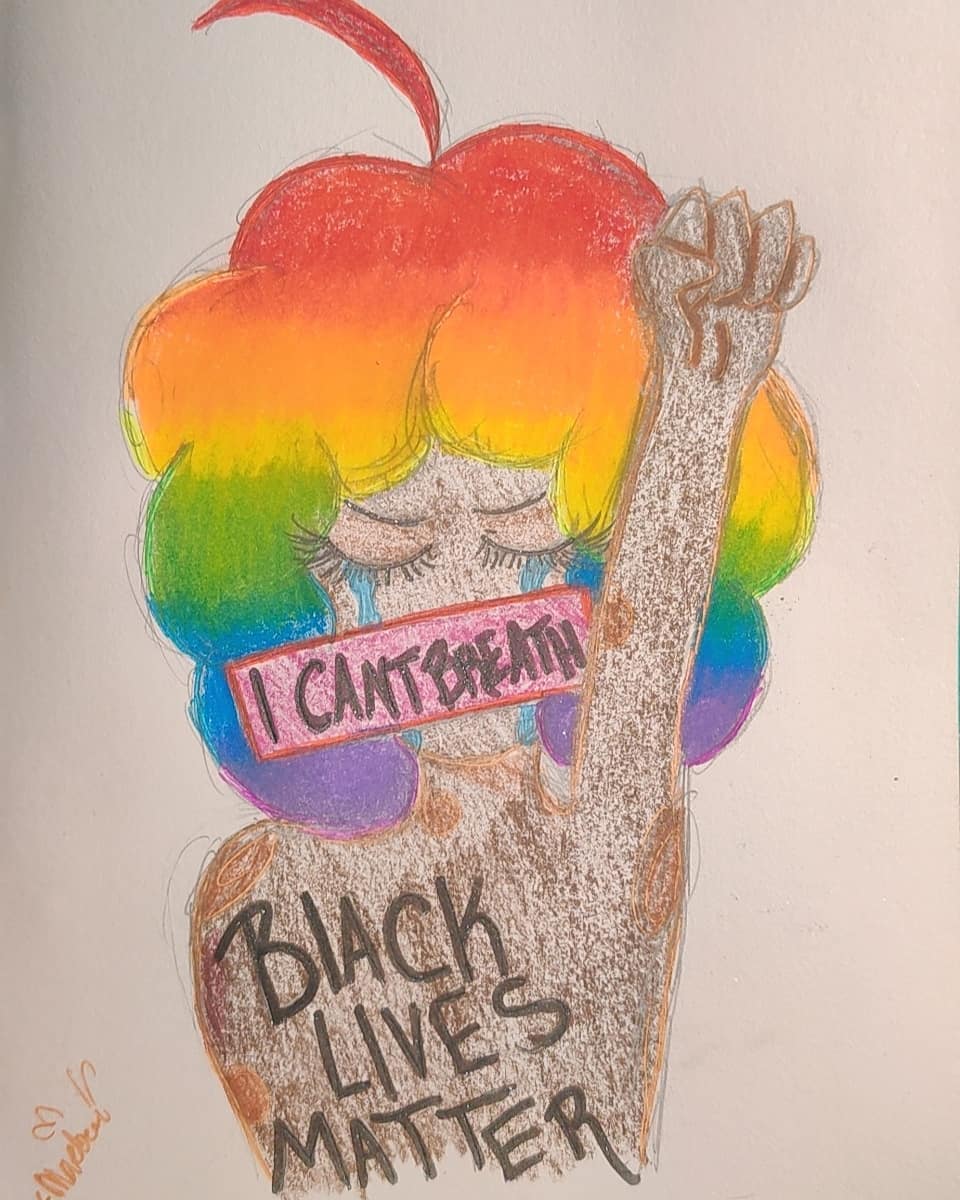 I CANT BREATH
BLACK
LIVES
MATTER